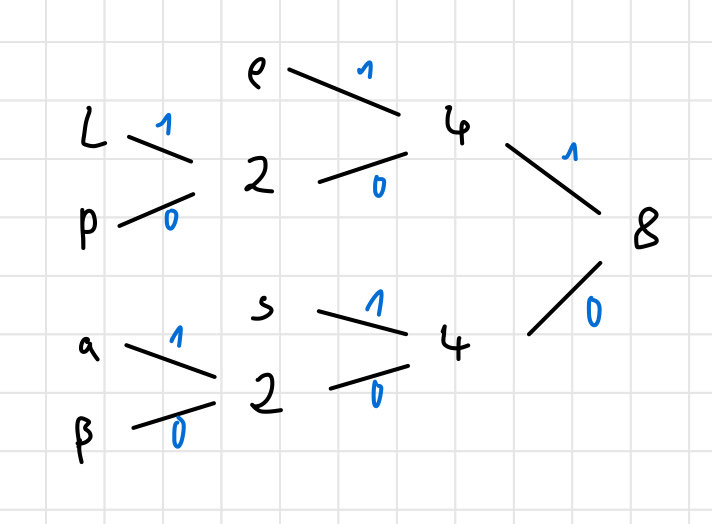 e 1
L 1 4 1
2 0
p 0 8
s 1 0
a 1 4
2 0
β 0